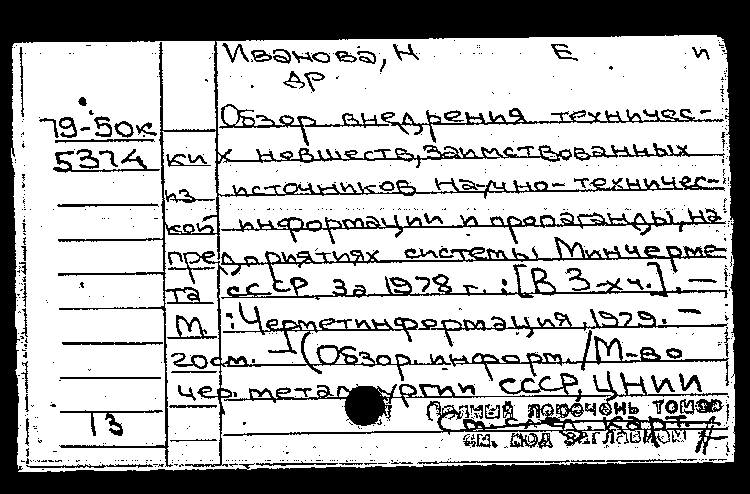 Иванова, Н Е и
др
Обзор внедрения техничес-
79-50к
5374 ких новшеств, заимствованных
из источников научно-техничес-
кой информации и пропаганды, на
предприятиях системы Минчерме-
та СССР за 1978 г. : [В 3-х ч.]. —
М. : Черметинформация, 1979. —
20 см. — (Обзор. информ. / М-во
чер. металлургии СССР, ЦНИИ
Полный перечень томов
13 См. след. карт.
см. под заглавием